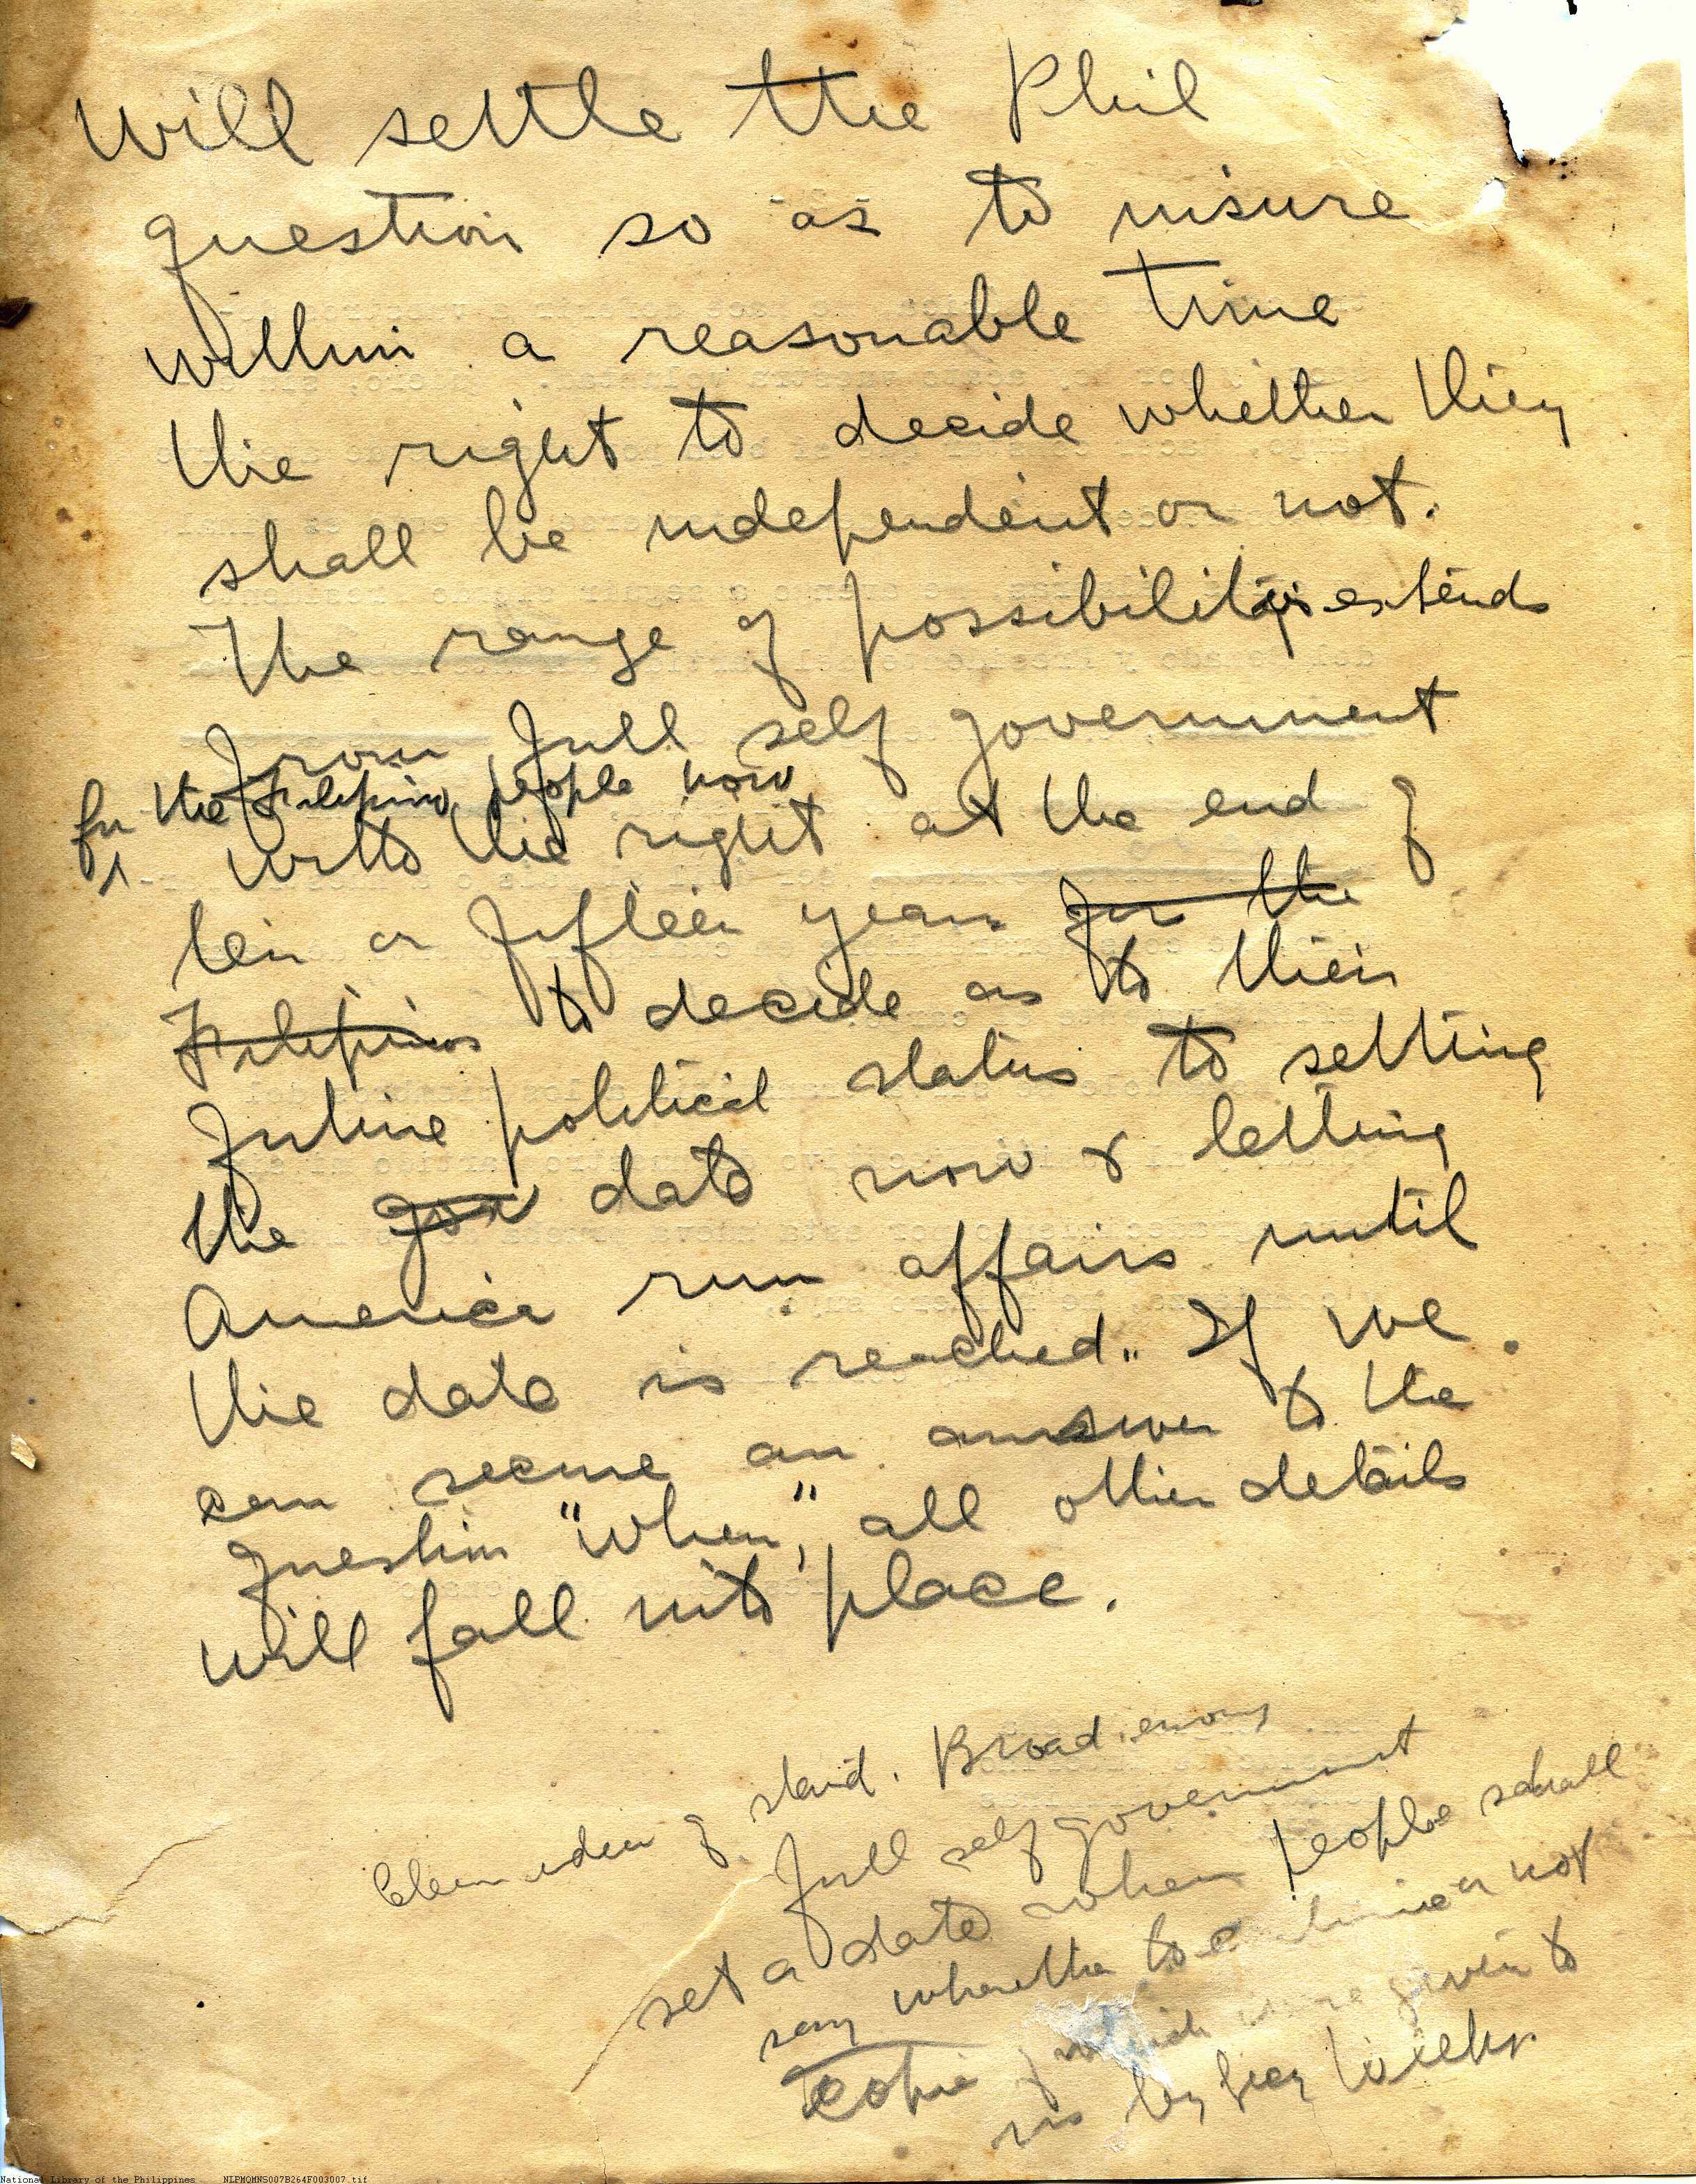 Will settle the Phil
question so as to insure
within a reasonable time
the right to decide whether they
shall be independent or not.
The range of possibility extends
from full self government
for the Filipino people now
with the right at the end of
ten or fifteen years for the
Filipinos to decide as to their
future political status to setting
the date now & letting
America run affairs until
the date is reached. If we
can secure an answer to the
question "When", all other details
will fall into place.
of stand. Broad
full self government
set a date when people shall
say whether to or not
which were given to
us by
National Library of the Philippines NLPMQMNS007B264F003007.tif